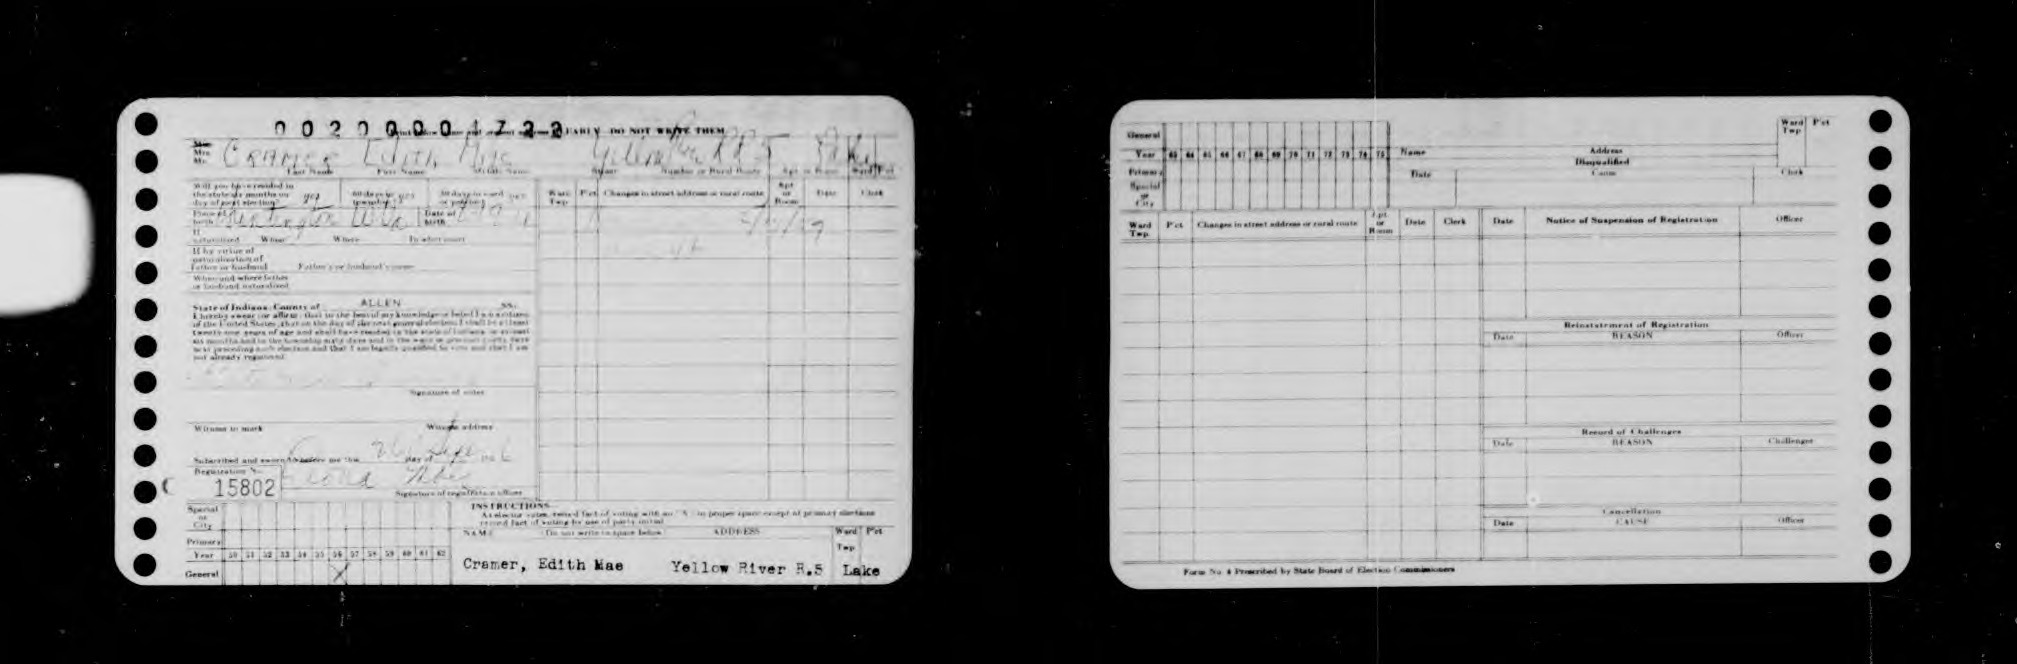 0 0 2 0 0 0 0 1 7 2 2
EARLY DO NOT WRITE THEM
Mrs.
Mr.
CRAMER Edith Mae Yellow River RR 5
Last Name First Name Middle Name Street Number or Rural Route Apt or Room Ward P'ct
Will you have resided in
the state six months on
day of next election? yes 60 days in
township? yes 30 days in ward
or precinct? yes
Ward
Twp P'ct Changes in street address or rural route Apt
or
Room Date Clerk
Place of
birth Date of
birth
If
naturalized When Where In what court
If by virtue of
naturalization of
Father or husband Father's or husband's name
When and where father
or husband naturalized
State of Indiana, County of ALLEN SS:
I hereby swear (or affirm) that to the best of my knowledge or belief I am a citizen
of the United States, that on the day of the next general election I shall be at least
twenty one years of age and shall have resided in the state of Indiana at least
six months and in the township sixty days and in the ward or precinct thirty days
next preceding such election and that I am legally qualified to vote and that I am
not already registered.
Signature of voter
Witness to mark Witness address
Subscribed and sworn to before me this 26 day of
Registration No.
15802
Signature of registration officer
INSTRUCTIONS
As elector votes, record fact of voting with an "X" in proper space except at primary elections
record fact of voting by use of party initial
Special
or
City
Primary
Year 50 51 52 53 54 55 56 57 58 59 60 61 62
General X
NAME (Do not write in space below) ADDRESS Ward P'ct
Twp
Cramer, Edith Mae Yellow River R.5 Lake
General
Year 63 64 65 66 67 68 69 70 71 72 73 74 75
Primary
Special
or
City
Name Address
Ward
Twp P'ct
Disqualified
Date Cause Clerk
Ward
Twp. P'ct Changes in street address or rural route Apt.
or
Room Date Clerk
Date Notice of Suspension of Registration Officer
Reinstatement of Registration
Date REASON Officer
Record of Challenges
Date REASON Challenger
Cancellation
Date CAUSE Officer
Form No. 4 Prescribed by State Board of Election Commissioners